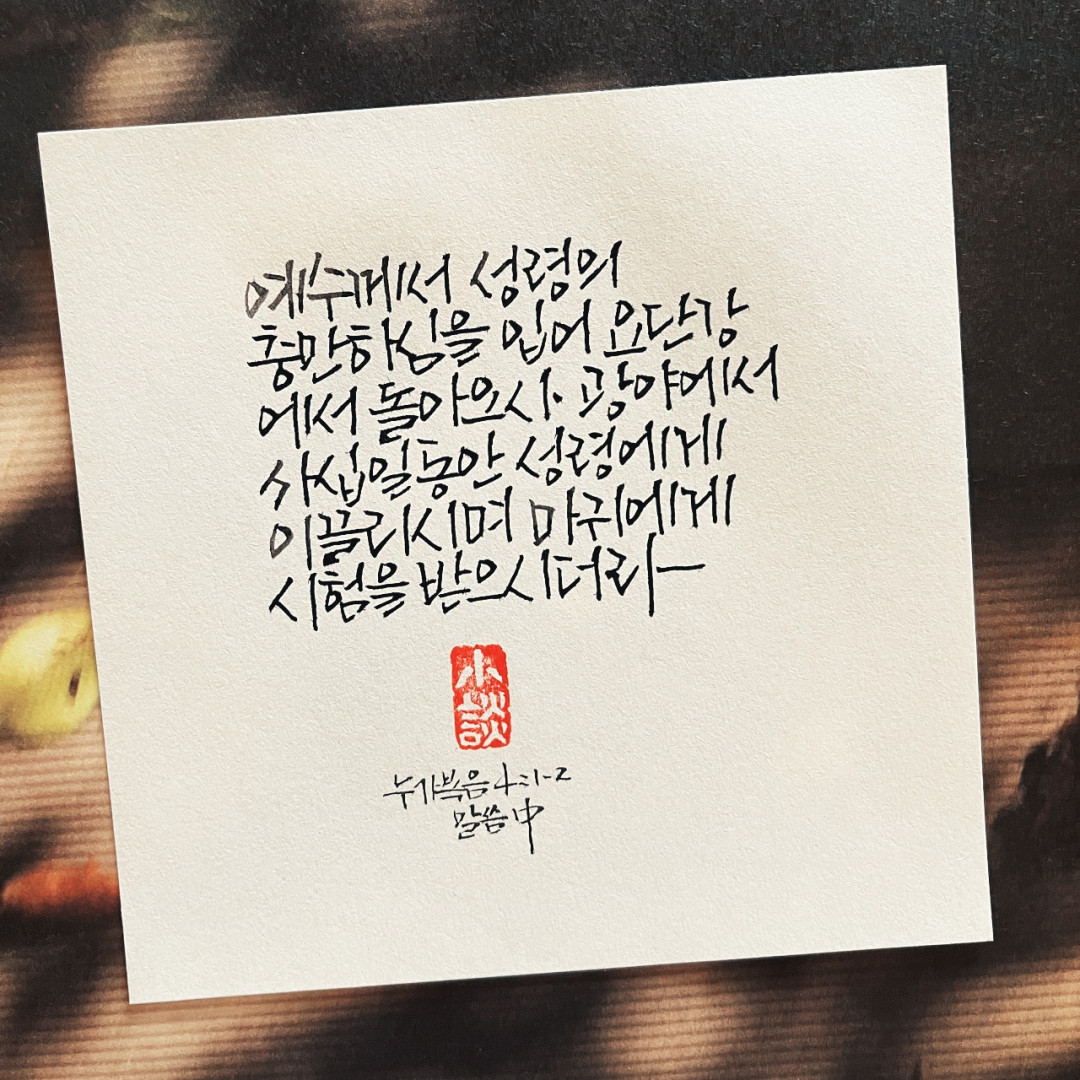 예수께서 성령의
충만하심을 입어 요단강
에서 돌아오사. 광야에서
사십일동안 성령에게
이끌리시며 마귀에게
시험을 받으시더라
小談
누가복음 4:1-2
말씀 中